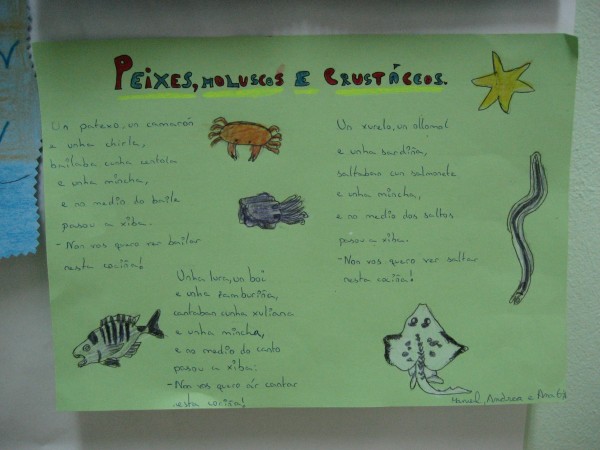 PEIXES, MOLUSCOS E CRUSTÁCEOS.
Un patexo, un camarón
e unha chirla,
bailaba cunha centola
e unha mincha,
e no medio do baile
pasou a xiba.
-Non vos quero ver bailar
nesta cociña!
Un xurelo, un ollomol
e unha sardiña,
saltaban cun salmonete
e unha mincha,
e no medio dos saltos
pasou a xiba.
-Non vos quero ver saltar
nesta cociña!
Unha lura, un boi
e unha zamburiña,
cantaban cunha xuliana
e unha mincha,
e no medio do canto
pasou a xiba:
-Non vos quero oir cantar
nesta cociña!
Manuel, Andrea e